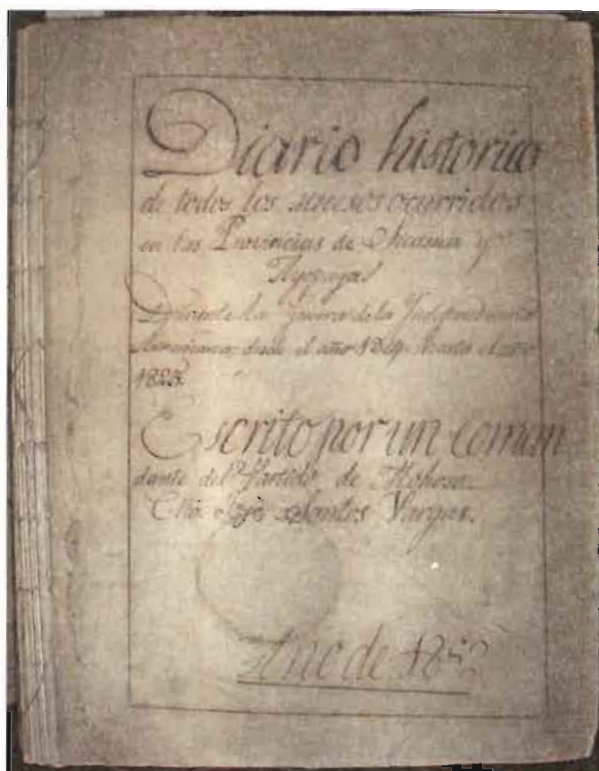 Diario historico
de todos los sucesos ocurridos
en las Provincias de Sicasica y
Ayopaya
Durante la guerra de la Independencia
Americana, desde el año 1814 hasta el año
1825.
Escrito por un coman
dante del Partido de Mohosa.
Ctno. José Santos Vargas.
Año de 1852